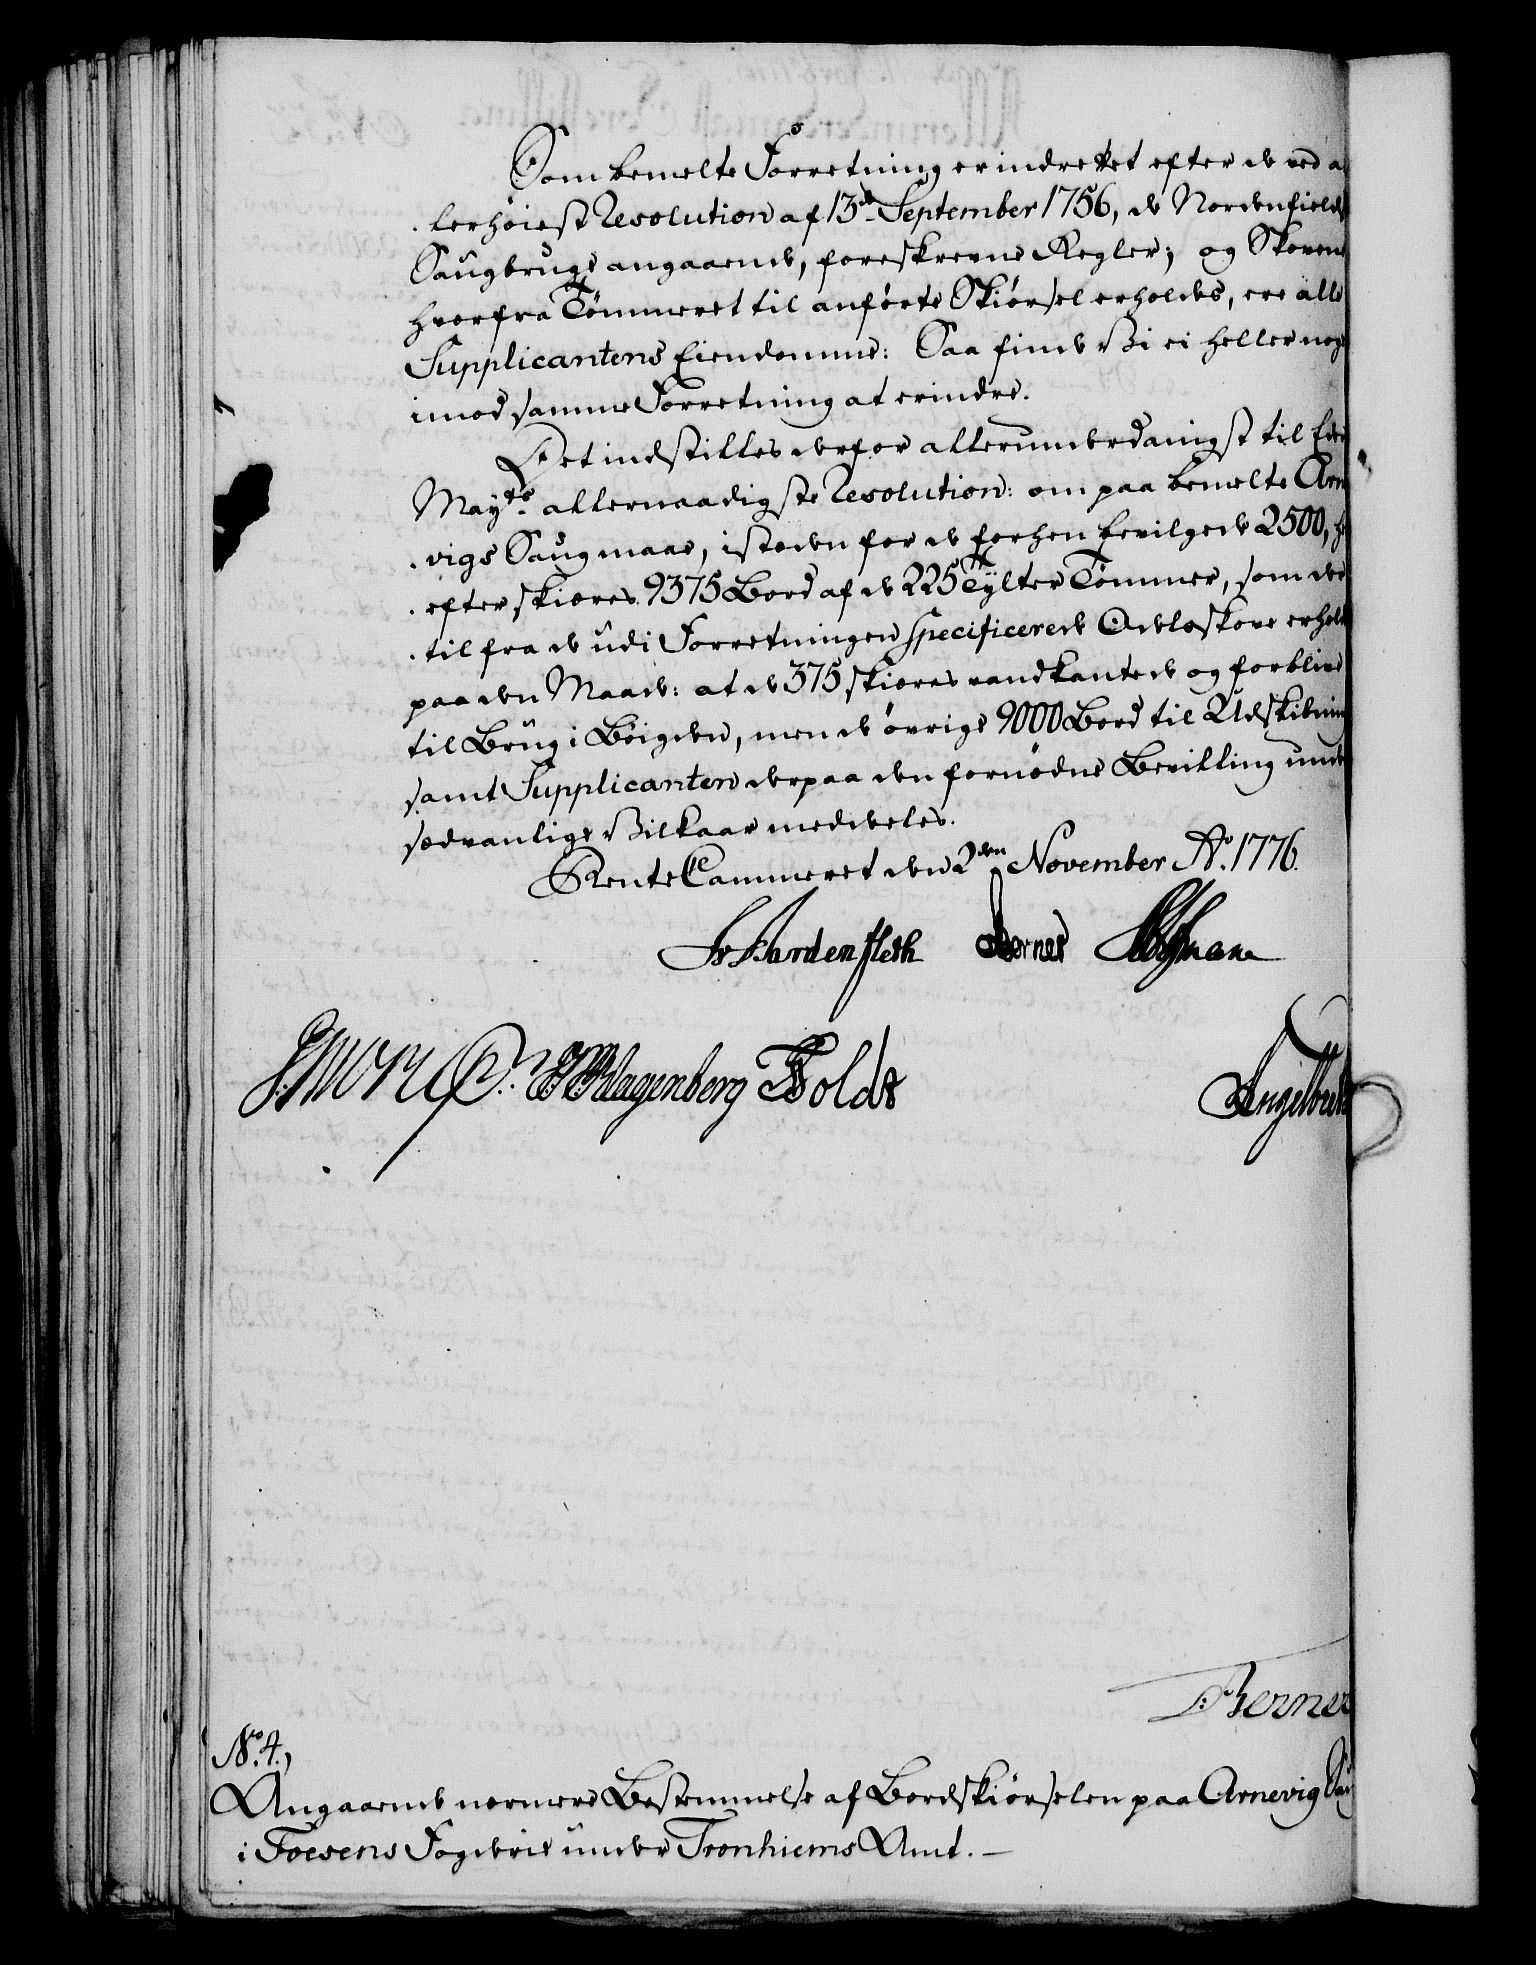 Som bemelte Forretning er indrettet efter de ved a
lerhøieste Resolution af 13de September 1756, de Nordenfieldske
Saugbruge angaaende, foreskrevne Regler; og Skovene
hvorfra Tømmeret til anførte Skiørsel erholdes, ere alle
Supplicantens Eiendomme: Saa finde Vi ei heller noget
imod samme Forretning at erindre.
Det indstilles derfor allerunderdanigst til Eders
Mayts. allernaadigste Resolution: om paa bemelte Arne
vigs Saug maae, istæden for de forhen bevilgede 2500, her
efter skiæres 9375 Bord af de 225 Tylter Tømmer, som der
til fra de udi Forretningen specificerede Odelsskove erholdes
paa den Maade: at de 375 skiæres vandkantede og forblive
til Brug i Bøigden, men de øvrige 9000 Bord til Udskibning
samt Supplicanten derpaa den fornødne Bevilling under
sædvanlige Vilkaar meddeles.
RenteCammeret den 2den November Ao. 1776.
Hardenfleth Berner
Wagenberg Holdt Engelbreth
Berner
No. 4.,
Angaaende nærmere Bestemmelse af Bordskiørselen paa Arnevig Sau
i Foesens Fogderie under Tronhiems Amt. –